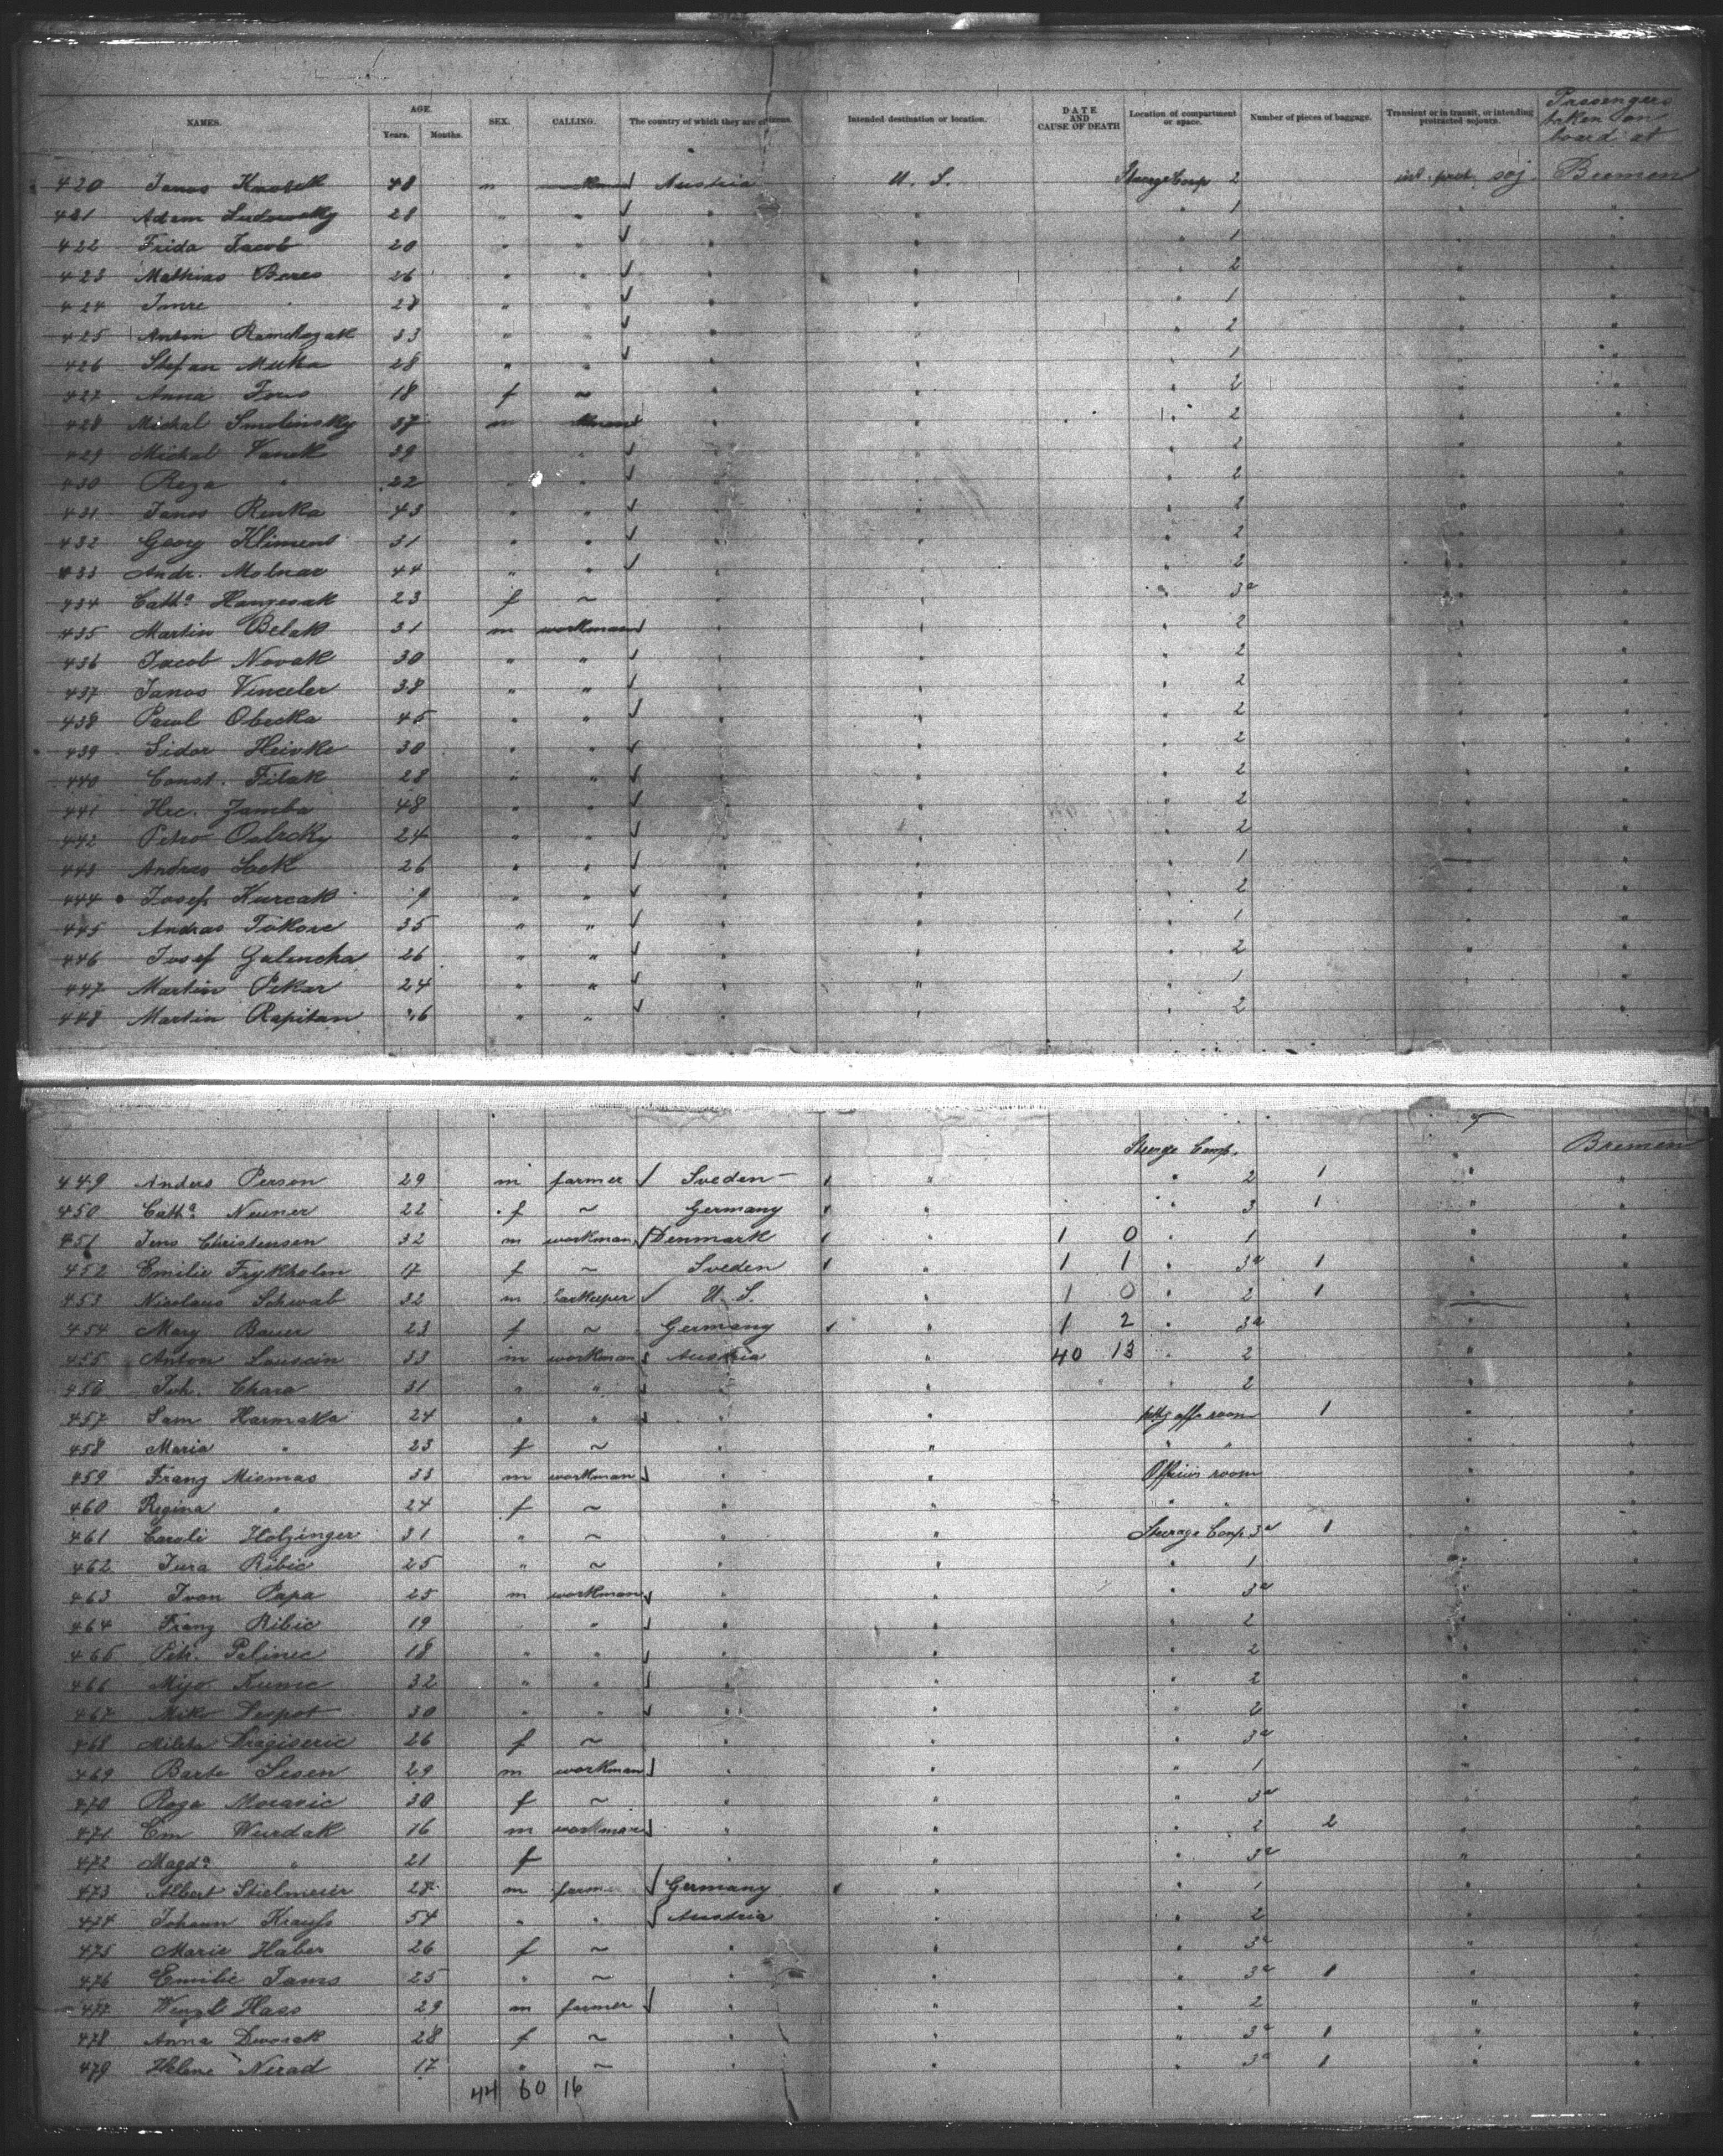 NAMES. AGE. Years. Months. SEX. CALLING. The country of which they are citizens. Intended destination or location. DATE AND CAUSE OF DEATH Location of compartment or space. Number of pieces of baggage. Transient or in transit, or intending protracted sojourn. Passengers taken on board at
420 Janos 48 m workman Austria U. S. Steerage Comp 2 int. prot. soj. Bremen
421 Adam 28 " " " " " 1 " "
422 Frida Jacob 20 " " " " " 1 " "
423 Mathias Beres 26 " " " " " 2 " "
424 Imre " 28 " " " " " 1 " "
425 Anton 33 " " " " " 2 " "
426 Stefan Muka 28 " " " " " 1 " "
427 Anna 18 f ~ " " " 2 " "
428 Michal Smolinsky 37 m " " " 2 " "
429 Michal Vanek 39 " " " " 2 " "
430 Reza " 22 " " " " " 2 " "
431 Janos Renka 43 " " " " " 2 " "
432 Georg Kliment 31 " " " " " 2 " "
433 Andr. Molnar 44 " " " " " 2 " "
434 Catha 23 f ~ " " " 3a " "
435 Martin Belak 31 m workman " " " 2 " "
436 Jacob Novak 30 " " " " " 2 " "
437 Janos Vinceler 38 " " " " " 2 " "
438 Pawl Obecka 45 " " " " " 2 " "
439 Sidor 30 " " " " " 2 " "
440 Const. Filak 28 " " " " " 2 " "
441 Zamba 48 " " " " " 2 " "
442 Petro 24 " " " " " 2 " "
443 Andras 26 " " " " " 1 " "
444 Josef Kurcak 9 " " " " " 2 " "
445 Andras 35 " " " " " 1 " "
446 Josef Galuncha 26 " " " " " 2 " "
447 Martin Pekar 24 " " " " " 1 " "
448 Martin Rapitan " " " " " 2 " "
Steerage Comp. " Bremen
449 Anders Person 29 m farmer Sveden " " 2 1 " "
450 Catha Neuner 22 f ~ Germany " " 3 1 " "
451 Jens Christensen 32 m workman Denmark " 1 0 " 1 " "
452 Emilie Frykholm 17 f ~ Sveden " 1 1 " 3a 1 " "
453 Nicolaus Schwab 32 m barkeeper U. S. " 1 0 " 2 1 " "
454 Mary Bauer 23 f ~ Germany " 1 2 " 3a " "
455 Anton 33 m workman Austria " 40 13 " 2 " "
456 Joh. Chara 31 " " " " " 2 " "
457 Sam Harmaka 24 " " " " room 1 " "
458 Maria " 23 f ~ " " " " " "
459 Franz Mismas 33 m workman " " Officers room " "
460 Regina " 24 f ~ " " " " " "
461 Caroli Holzinger 31 " ~ " " Steerage Comp. 3a 1 " "
462 Jura Ribic 25 " ~ " " " 1 " "
463 Ivan Papa 25 m workman " " " 3a " "
464 Franz Ribic 19 " " " " " 2 " "
465 Petr. Pelinec 18 " " " " " 2 " "
466 Mijo Kunic 32 " " " " " 2 " "
467 Miko Lespot 30 " " " " " 2 " "
468 Mileta Dragiseric 26 f ~ " " " 3a " "
469 Barte Sesen 29 m workman " " " 1 " "
470 Roza Morasic 30 f ~ " " " 3a " "
471 Em Wurdak 16 m workman " " " 2 2 " "
472 Magda " 21 f " " " 3a " "
473 Albert Stielmeier 28 m farmer Germany " " 1 " "
474 Johann Krauss 54 " " Austria " " 2 " "
475 Marie Haber 26 f ~ " " " 3a " "
476 Emilie Jams 25 " ~ " " " 3a 1 " "
477 Wenzl Hass 29 m farmer " " " 2 " "
478 Anna Dworak 28 f ~ " " " 3a 1 " "
479 Helene Nerad 17 " ~ " " " 3a 1 " "
44 60 16